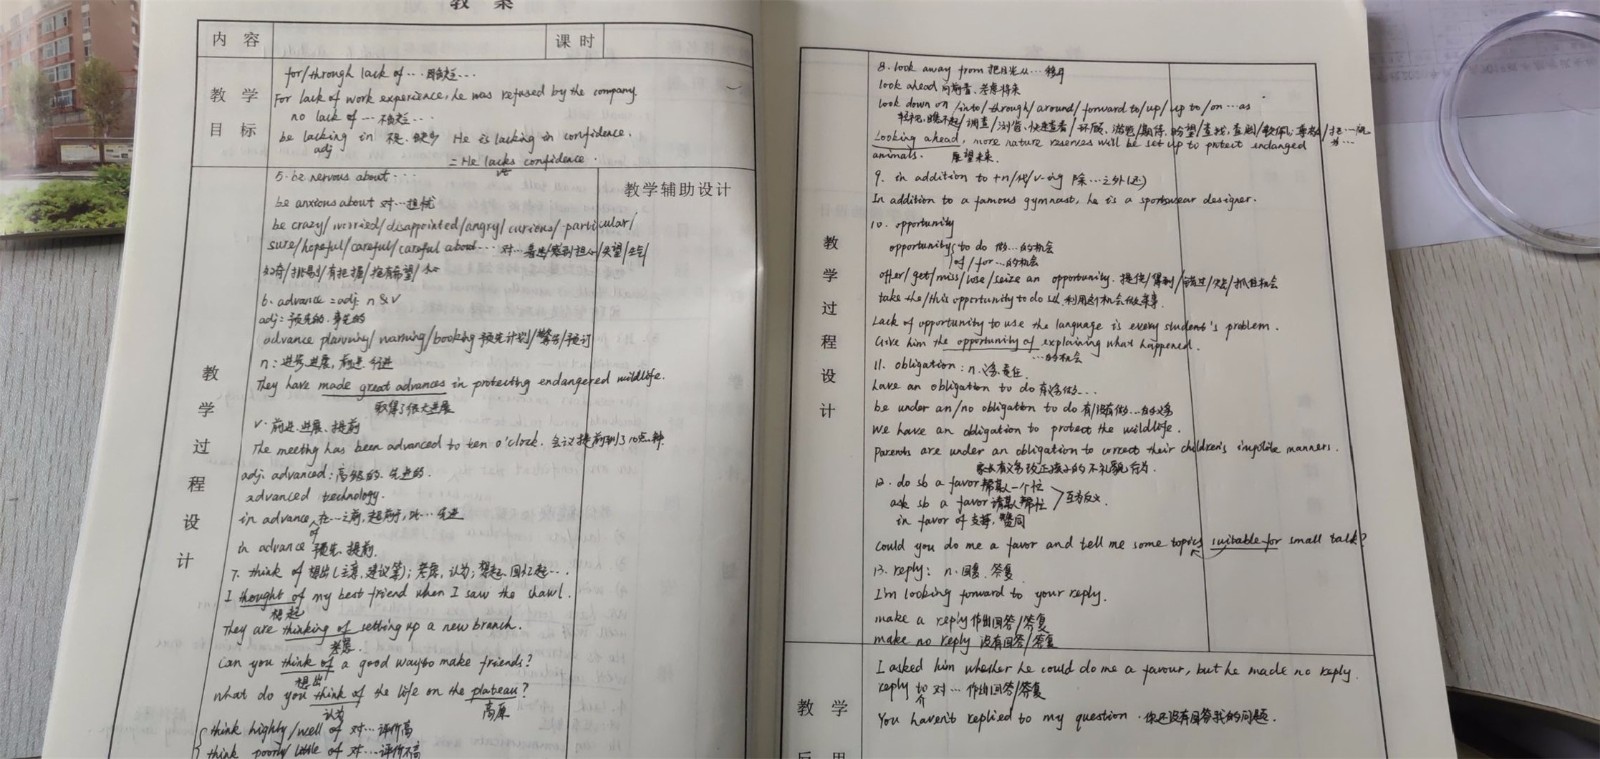 教 案
内 容
课 时
教 学
目 标
for/through lack of … 因缺乏…
For lack of work experience, he was refused by the company.
no lack of … 不缺乏…
be lacking in 不足, 缺少 He is lacking in confidence.
adj
= He lacks confidence.
vt
教学辅助设计
教
学
过
程
设
计
5. be nervous about …
be anxious about 对…担忧
be crazy/worried/disappointed/angry/curious/particular/
sure/hopeful/careful/careful about… 对…着迷/感到担心/失望/生气/
好奇/挑剔/有把握/抱有希望/小心
6. advance = adj. n & v
adj: 预先的, 事先的
advance planning/warning/booking 预先计划/警告/预订
n: 进步, 进展, 前进, 行进
They have made great advances in protecting endangered wildlife.
取得了很大进展
v. 前进, 进展, 提前
The meeting has been advanced to ten o'clock. 会议提前到了10点钟.
adj. advanced: 高级的, 先进的.
advanced technology.
in advance of 在…之前, 超前于, 比…先进
in advance 预先, 提前
7. think of 想出(主意, 建议等); 考虑, 认为; 想起, 回忆起…
I thought of my best friend when I saw the shawl.
想起
They are thinking of setting up a new branch.
考虑
Can you think of a good way to make friends?
想出
What do you think of the life on the plateau?
认为
高原
think highly/well of 对…评价高
think poorly/little of 对…评价不高
教
学
过
程
设
计
8. look away from 把目光从…移开
look ahead 向前看, 考虑将来
look down on/into/through/around/forward to/up/up to/on…as
瞧不起/调查/浏览, 快速查看/环顾, 游览/期待, 盼望/查找, 查阅/钦佩, 尊敬/把…视为…
Looking ahead, more nature reserves will be set up to protect endangered
animals. 展望未来.
9. in addition to +n/代/v-ing 除…之外(还)
In addition to a famous gymnast, he is a sportswear designer.
10. opportunity
opportunity to do 做…的机会
/of/for…的机会
offer/get/miss/lose/seize an opportunity. 提供/得到/错过/失去/抓住机会
take the/this opportunity to do sth 利用这个机会做某事.
Lack of opportunity to use the language is every student's problem.
Give him the opportunity of explaining what happened.
…的机会
11. obligation: n. 义务, 责任
have an obligation to do 有义务做…
be under an/no obligation to do 有/没有做…的义务
We have an obligation to protect the wildlife.
Parents are under an obligation to correct their children's impolite manners.
家长有义务改正孩子的不礼貌行为.
12. do sb a favor 帮某人一个忙
ask sb a favor 请某人帮忙
互为反义
in favor of 支持, 赞同
Could you do me a favor and tell me some topics suitable for small talk?
13. reply: n. 回复, 答复
I'm looking forward to your reply.
make a reply 作出回答/答复
make no reply 没有回答/答复
教 学
反 思
I asked him whether he could do me a favour, but he made no reply.
reply to 对…作出回答/答复
介
You haven't replied to my question. 你还没有回答我的问题.